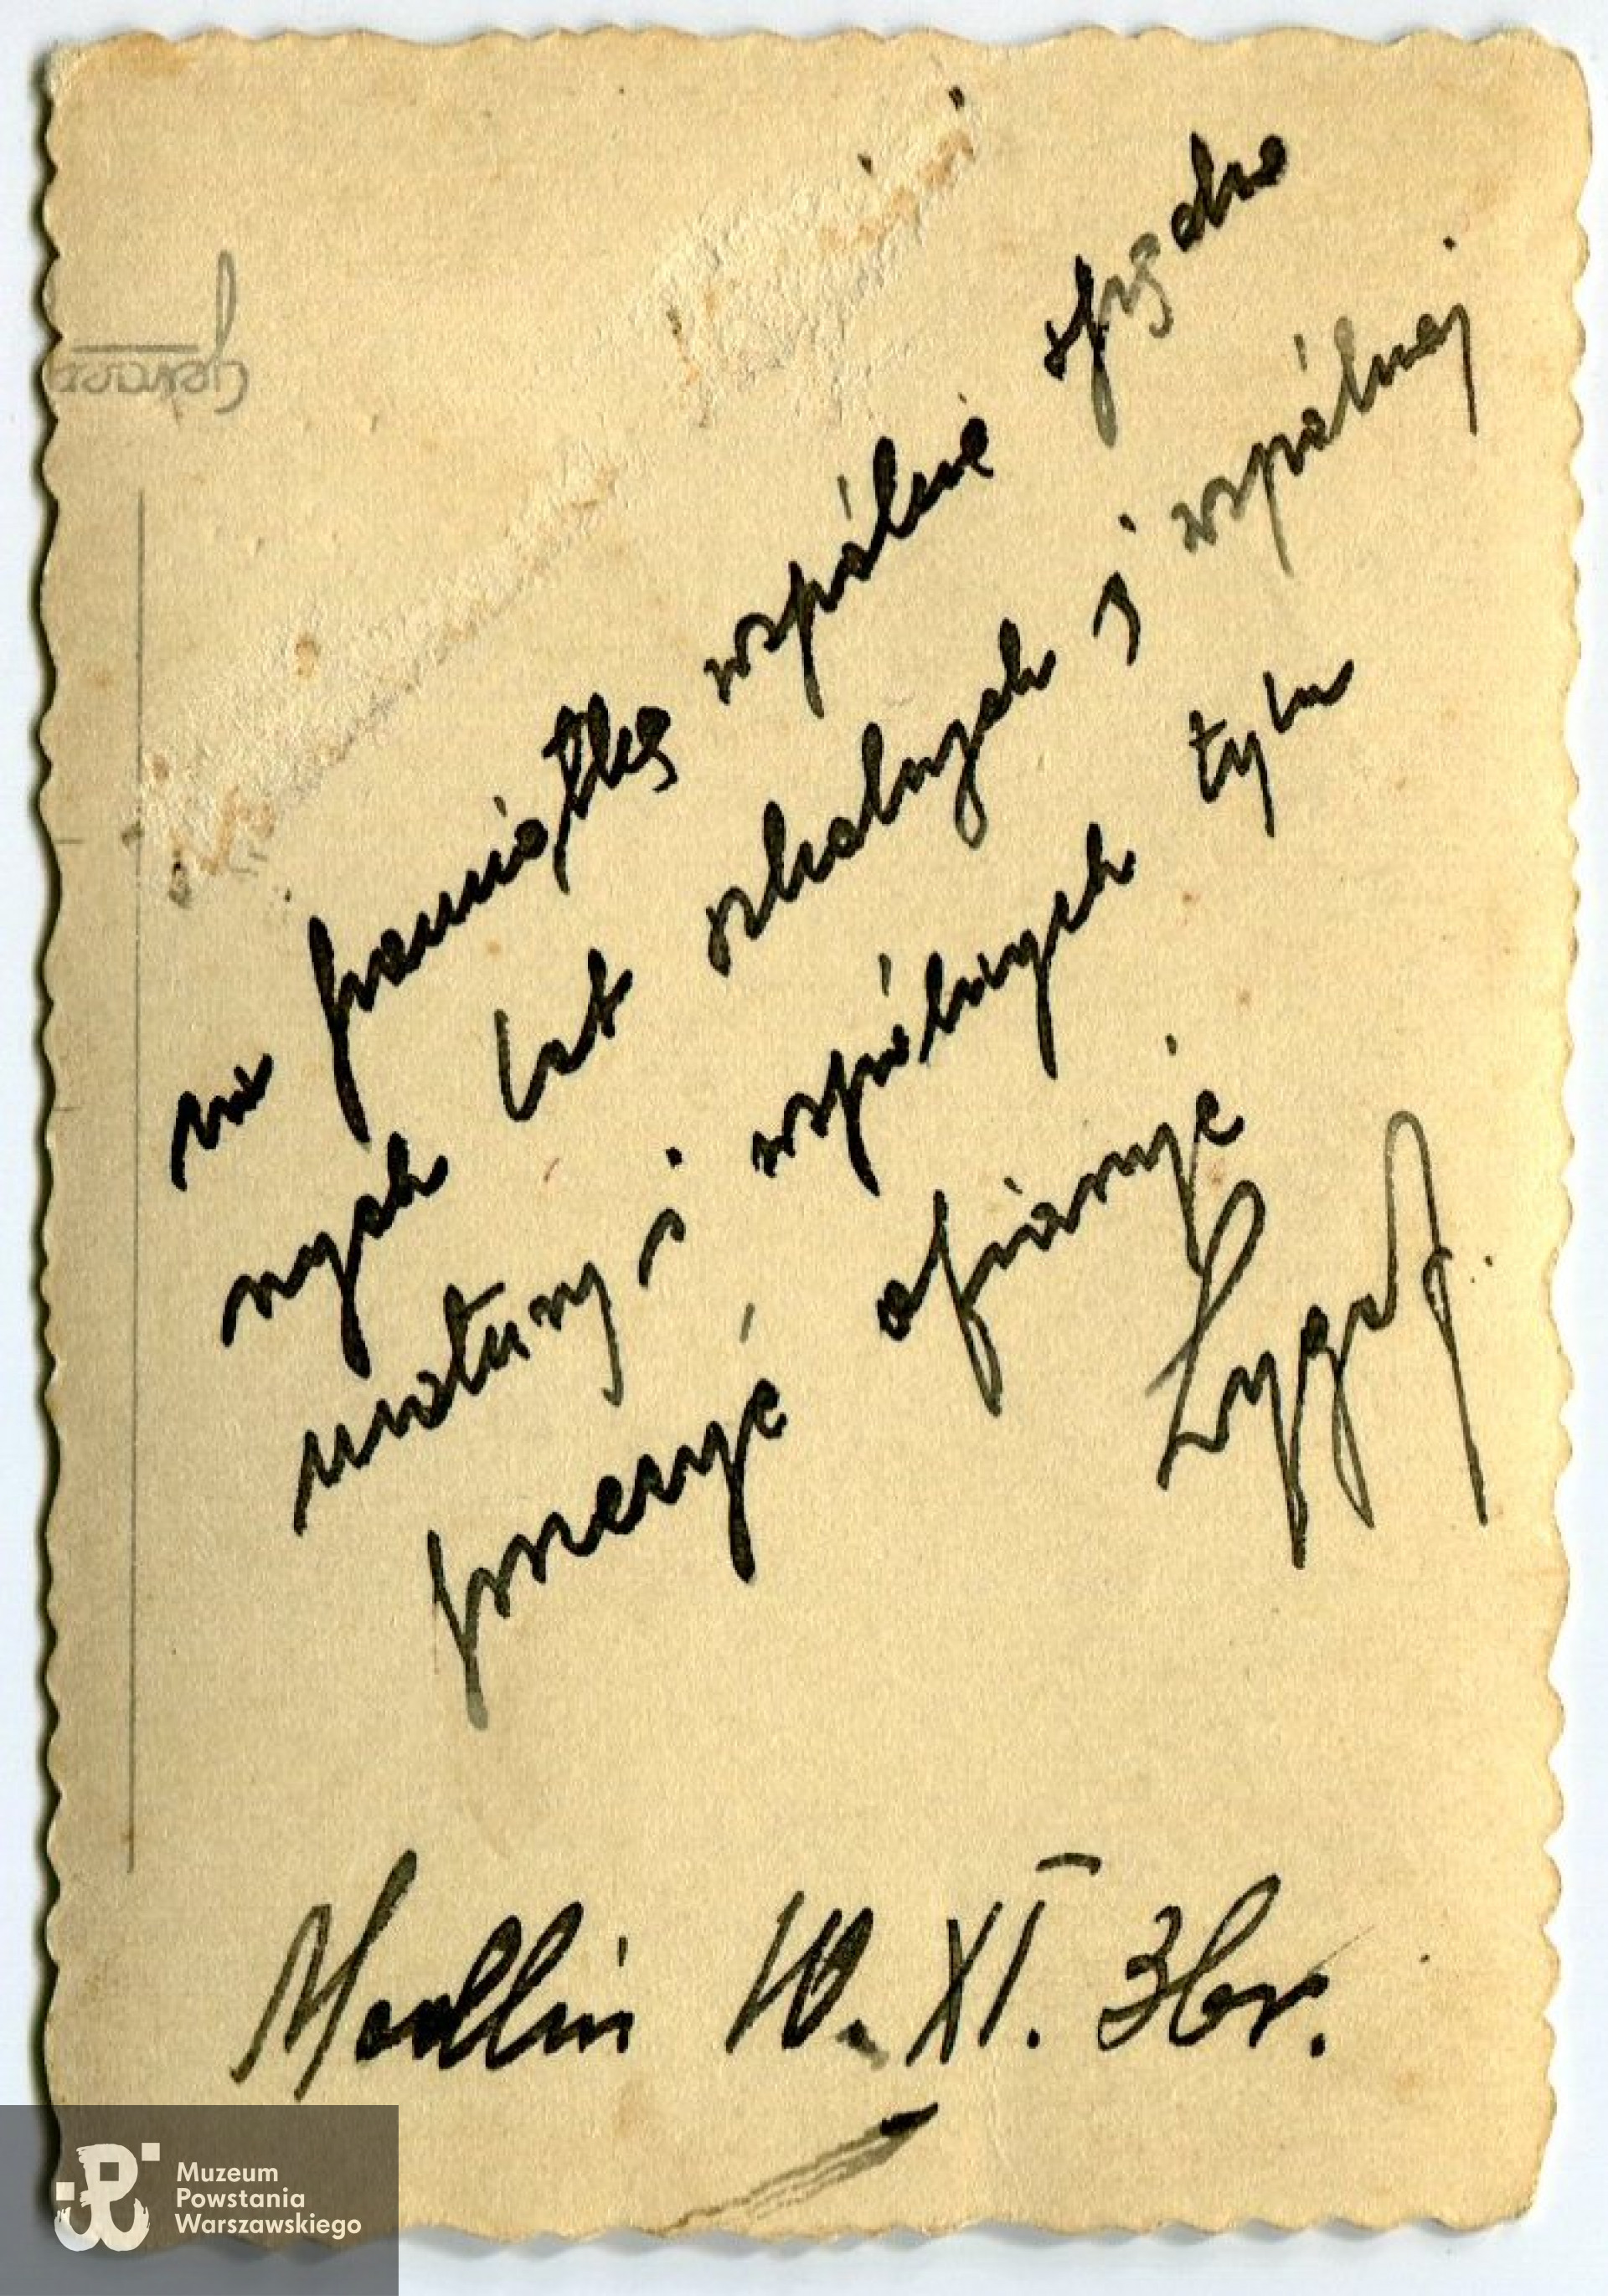 na pamiątkę wspólnie spędzo
nych lat szkolnych i wspólnej
matury i wspólnych tym
ofiaruje
Modlin 10. XI. 36r.
Muzeum
Powstania
Warszawskiego